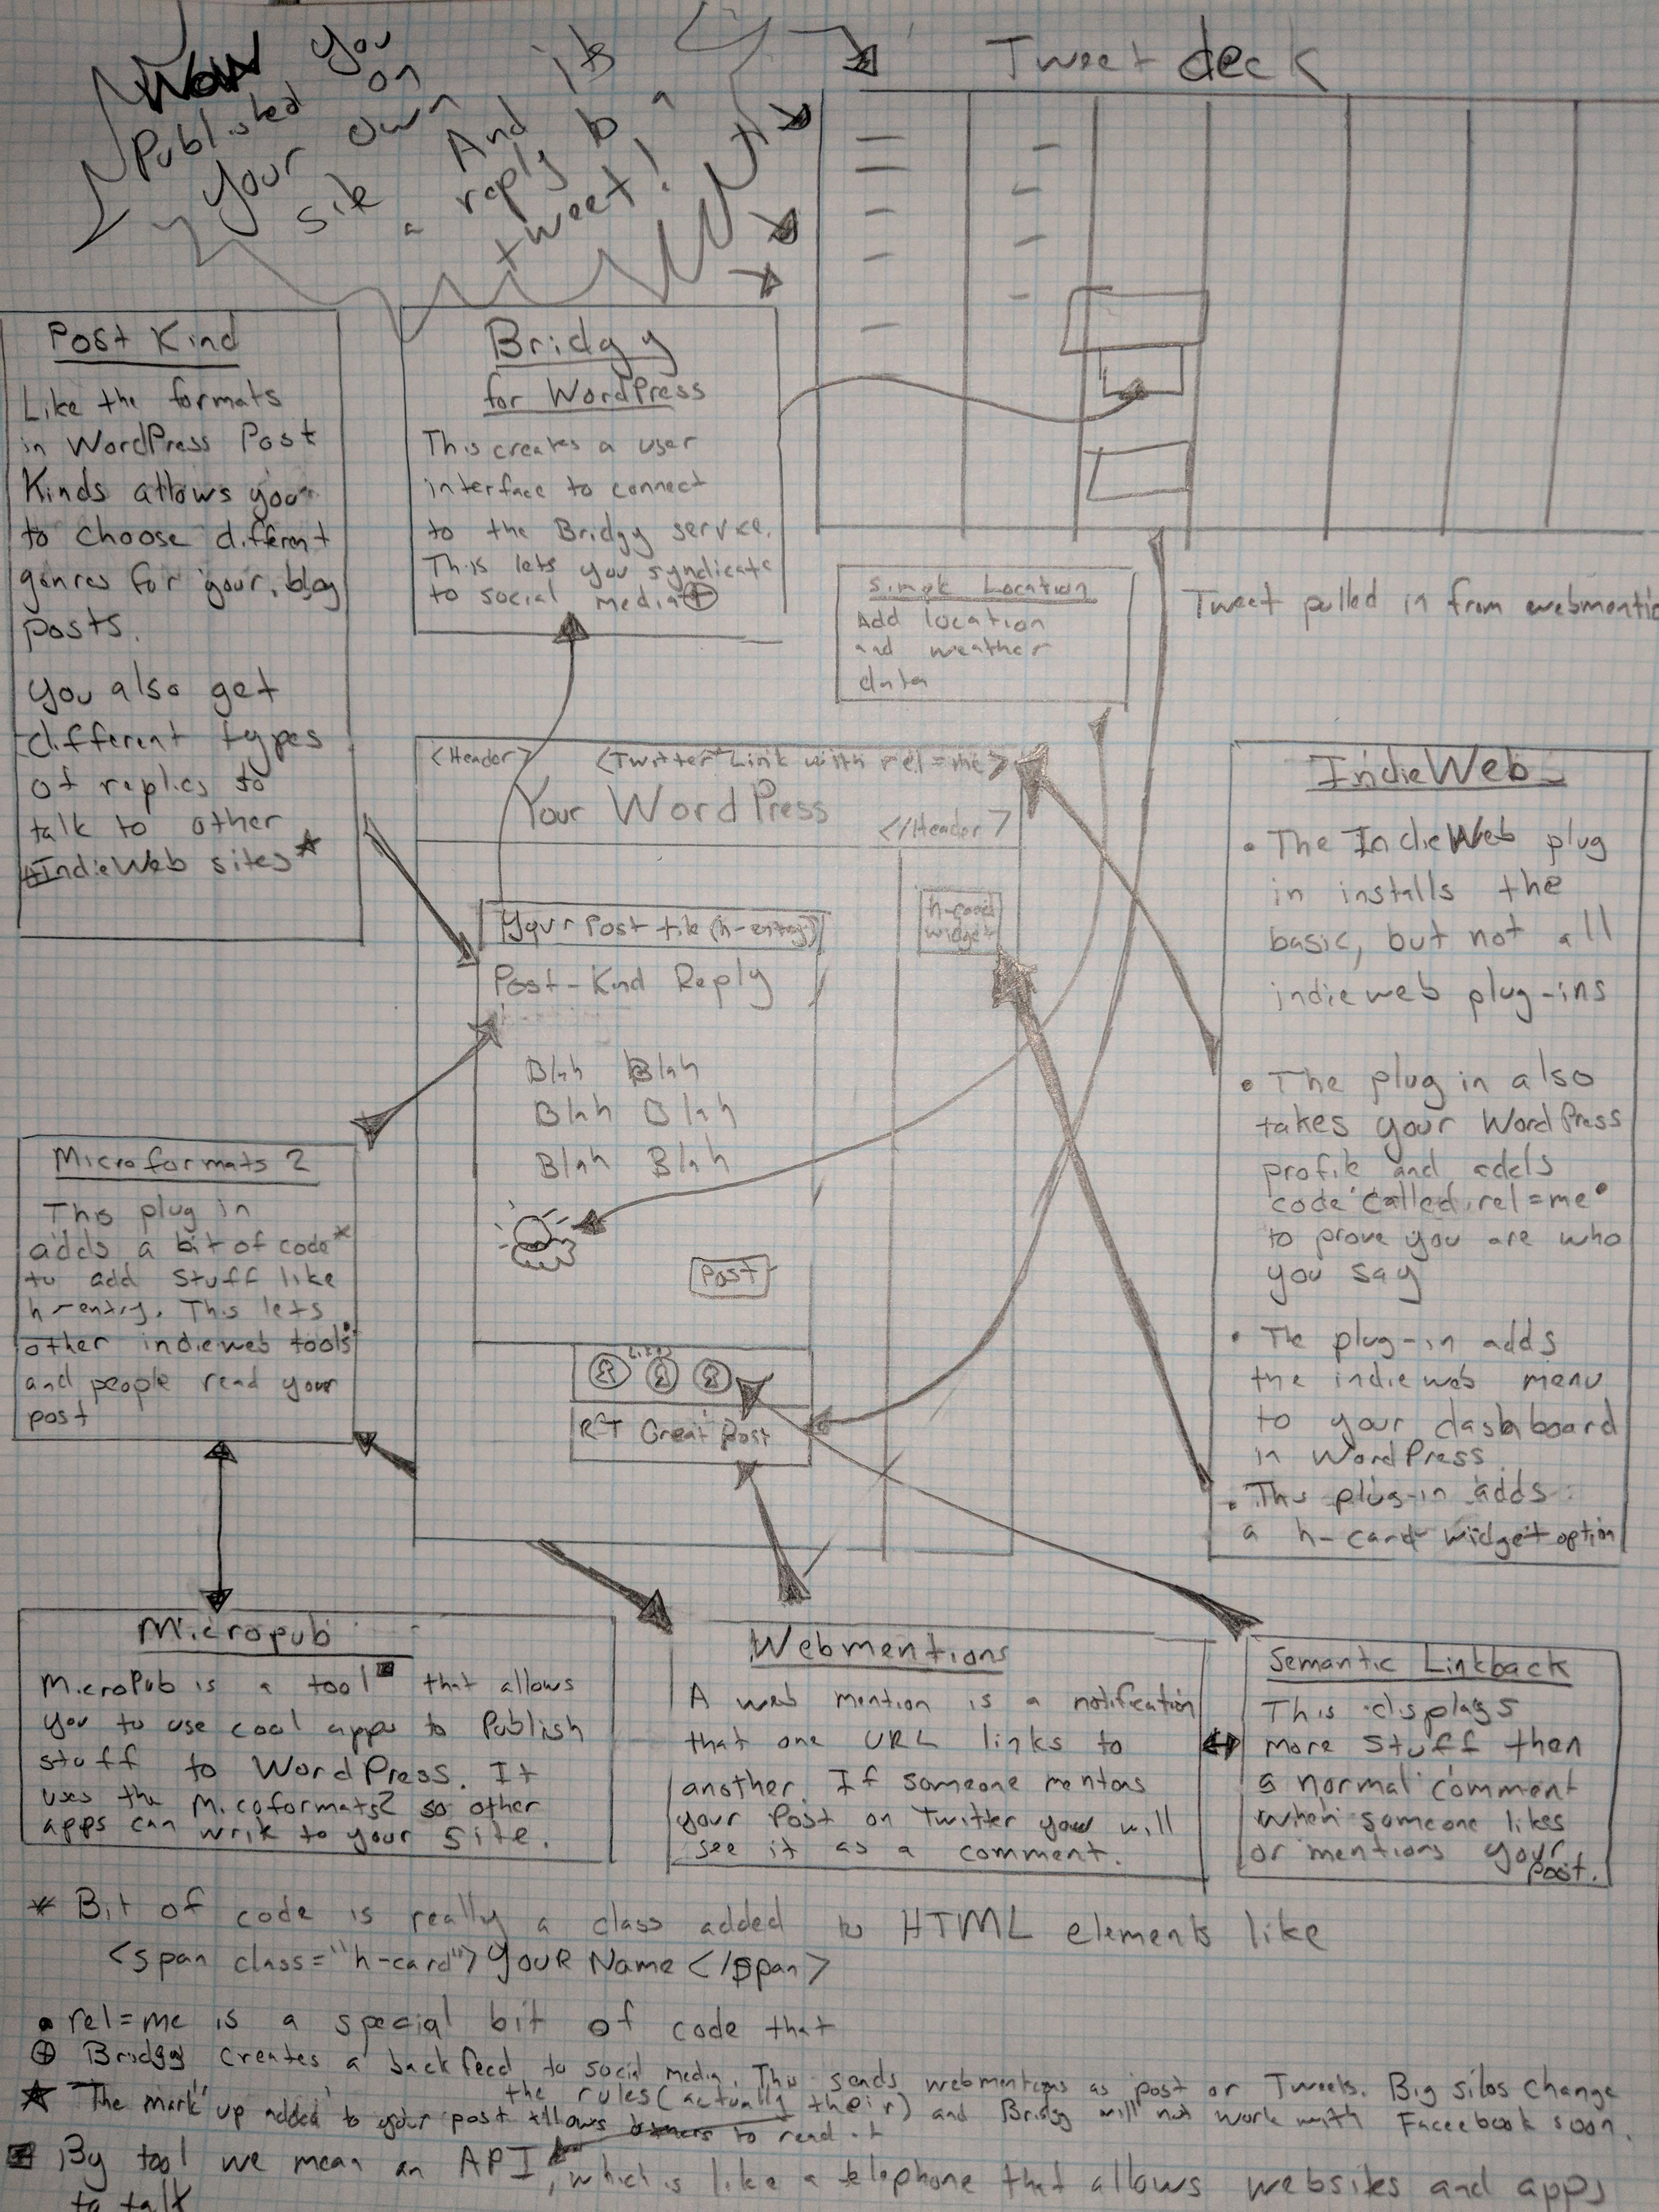 Now you
Published on
your own
site And its
a reply to a
tweet!
Tweet deck
Post Kind
Like the formats
in WordPress Post
Kinds allows you
to choose different
genres for your blog
posts.
You also get
different types
of replies to
talk to other
IndieWeb sites*
Bridgy
for WordPress
This creates a user
interface to connect
to the Bridgy service.
This lets you syndicate
to social media⊕
Simple Location
Add location
and weather
data
Tweet pulled in from webmentio
<Header> <Twitter Link with rel=me>
Your WordPress
</Header>
Your Post title (h-entry)
h-card
widget
Post-Kind Reply
Blah Blah
Blah Blah
Blah Blah
Post
Likes
RT Great Post
IndieWeb
• The IndieWeb plug
in installs the
basic, but not all
indieweb plug-ins
• The plug in also
takes your WordPress
profile and adds
code called rel=me•
to prove you are who
you say
• The plug-in adds
the indieweb menu
to your dashboard
in WordPress
• The plug-in adds
a h-card widget option
Microformats 2
This plug in
adds a bit of code*
to add stuff like
h-entry. This lets
other indieweb tools•
and people read your
post
Micropub
MicroPub is a tool■ that allows
you to use cool apps to Publish
stuff to WordPress. It
uses the Micoformats2 so other
apps can write to your site.
Webmentions
A web mention is a notification
that one URL links to
another. If someone mentons
your Post on Twitter you will
see it as a comment.
Semantic Linkback
This displays
more stuff then
a normal comment
when someone likes
or mentions your
Post.
* Bit of code is really a class added to HTML elements like
<span class="h-card">YOUR Name</span>
• rel=me is a special bit of code that
⊕ Bridgy creates a backfeed to social media. This sends webmentions as post or Tweets. Big silos change
the rules (actually their) and Bridgy will not work with Faceebook soon.
★ The mark up added to your post allows others to read it
■ By tool we mean an API, which is like a telephone that allows websites and apps
to talk